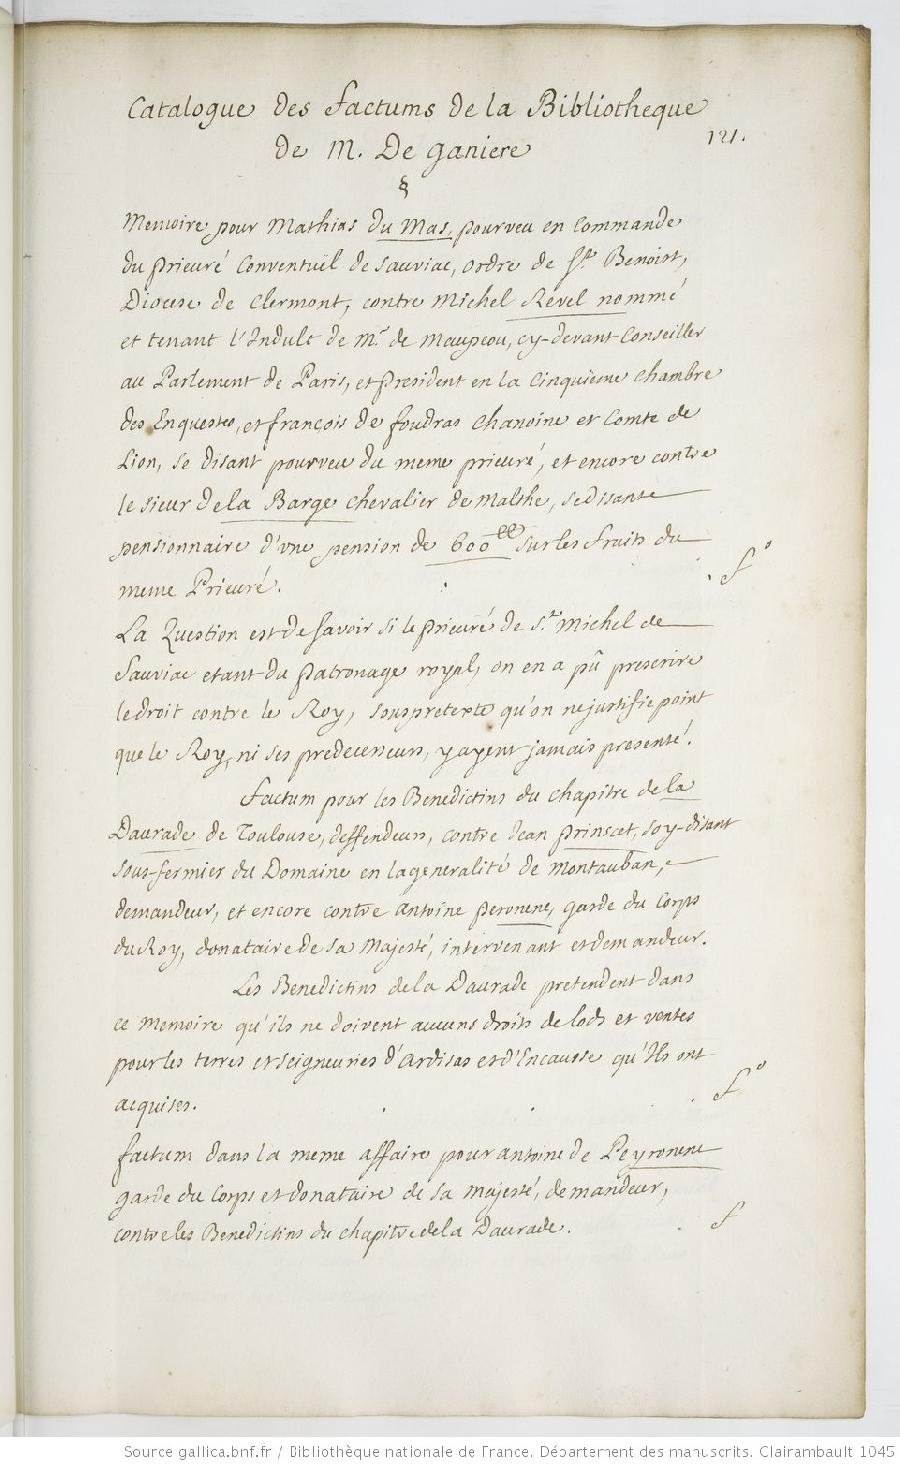 Catalogue des factums de la Bibliotheque
de M. De ganiere
121.
§
Memoire pour Mathias du Mas, pourveu en Commande
du prieuré Conventuël de Sauviac, ordre de St. Benoist,
Diocese de Clermont, contre Michel Revel nommé
et tenant l'Indult de Mr. de Maupeou, cy-devant Conseiller
au Parlement de Paris, et president en la Cinquieme chambre
des Enquestes, et françois de foudras Chanoine et Comte de
Lion, se disant pourveu du meme prieuré, et encore contre
le sieur de la Barge chevalier de Malthe, se disante
pensionnaire d'vne pension de 600tt sur les fruits du
meme Prieuré. fo
La Question est de savoir si le prieuré de St. Michel de
Sauviac etant du patronage royal, on en a pû prescrire
le droit contre le Roy, sous pretexte qu'on ne justifie point
que le Roy, ni ses predecesseurs, y ayent jamais presenté.
factum pour les Benedictins du chapitre de la
Daurade de Toulouse, deffendeurs, contre Jean prinscet, soy-disant
sous-fermier du Domaine en la generalité de Montauban,
demandeur, et encore contre antoine peronene, garde du Corps
du Roy, donataire de sa Majesté, intervenant et demandeur.
Les Benedictins de la Daurade pretendent dans
ce memoire qu'ils ne doivent aucuns droits de lods et ventes
pour les terres et seigneuries d'ardisas et d'Encausse qu'Ils ont
acquises. fo
factum dans la meme affaire pour antoine de Peyronene
garde du Corps et donataire de sa majesté, demandeur,
contre les Benedictins du chapitre de la Daurade. f
Source gallica.bnf.fr / Bibliothèque nationale de France. Département des manuscrits. Clairambault 1045